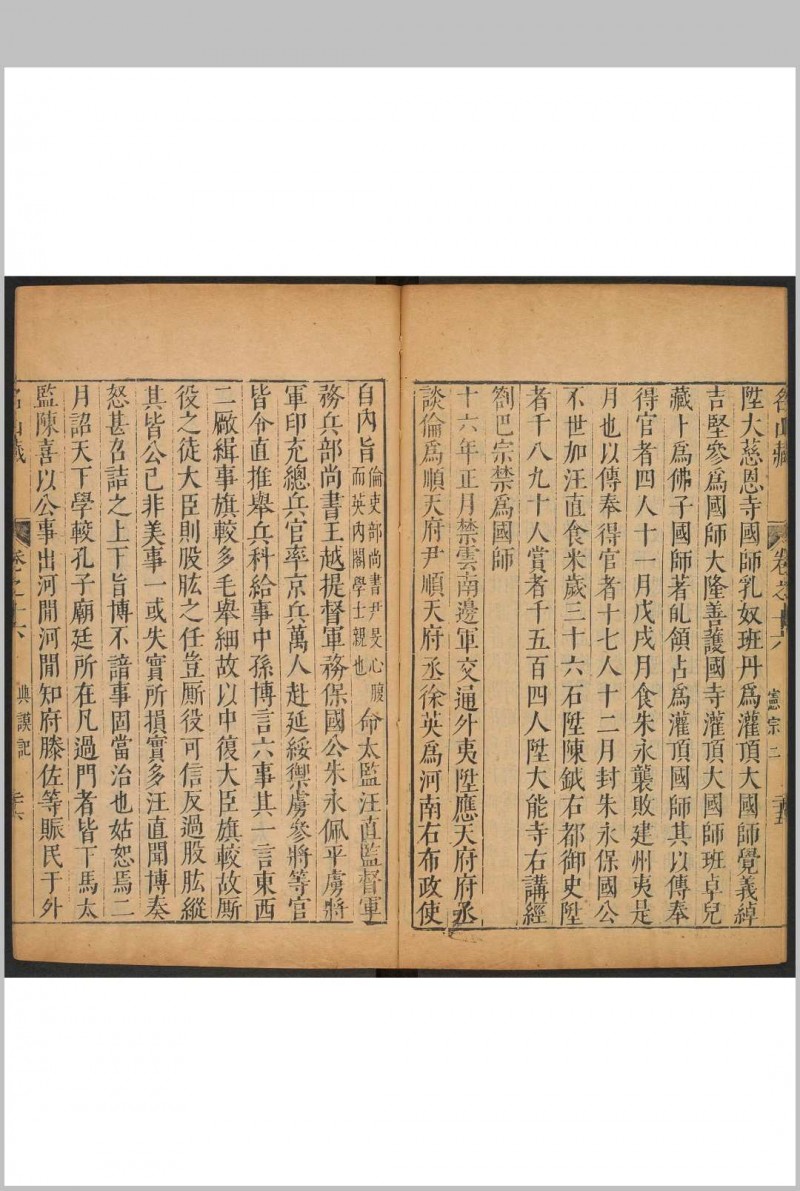 名山藏 卷之十六 憲宗二 二十五
陞大慈恩寺國師乳奴班丹爲灌頂大國師覺義綽
吉堅參爲國師大隆善護國寺灌頂大國師班卓兒
藏卜爲佛子國師著乩領占爲灌頂國師其以傳奉
得官者四人十一月戊戌月食朱永襲敗建州夷是
月也以傳奉得官者十七人十二月封朱永保國公
不世加汪直食米歲三十六石陞陳鉞右都御史陞
者千八九十人賞者千五百四人陞大能寺右講經
劄巴宗禁爲國師
十六年正月禁雲南邊軍交通外夷陞應天府府丞
談倫爲順天府尹順天府丞徐英爲河南右布政使
自內旨倫吏部尚書尹旻心腹而英內閣學士親也命太監汪直監督軍
務兵部尚書王越提督軍務保國公朱永佩平虜將
軍印充總兵官率京兵萬人赴延綏禦虜參將等官
皆令直推舉兵科給事中孫博言六事其一言東西
二厰緝事旗較多毛舉細故以中復大臣旗較故厮
役之徒大臣則股肱之任豈厮役可信反過股肱縱
其皆公已非美事一或失實所損實多汪直聞博奏
怒甚召詰之上下旨博不諳事固當治也姑恕焉二
月詔天下學較孔子廟廷所在凡過門者皆下馬太
監陳喜以公事出河間河間知府滕佐等賑民于外
名山藏 卷之十六 典謨記 二十六